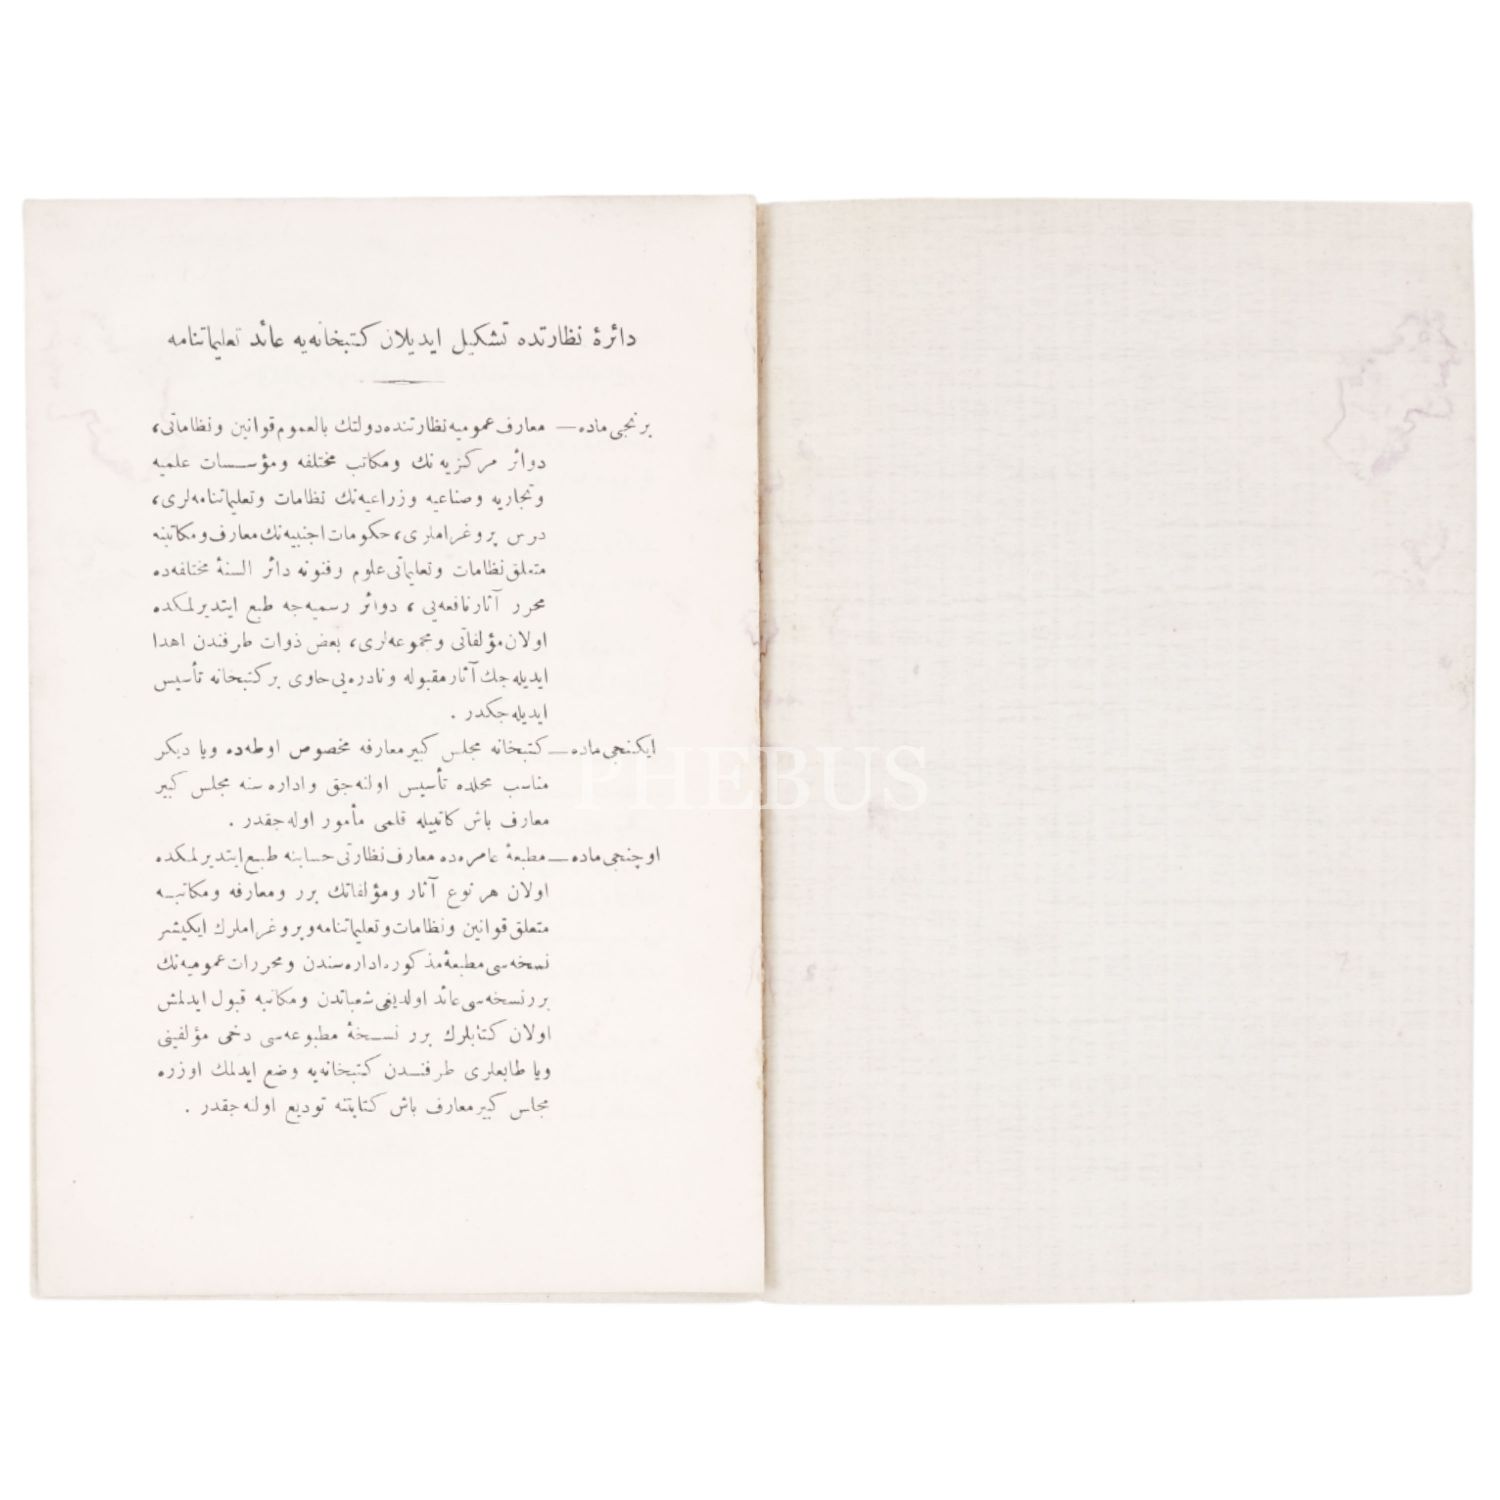 دائرۀ نظارتده تشکیل ایدیلان کتبخانه‌یه عائد تعلیماتنامه
برنجی ماده — معارف عمومیه نظارتنده دولتك بالعموم قوانین و نظاماتی،
دوائر مرکزیه نك ومکاتب مختلفه ومؤسسات علمیه
وتجاریه وصناعیه وزراعیه‌نك نظامات وتعلیماتنامه‌لری،
درس پروغراملری، حکومات اجنبیه‌نك معارف ومکاتبنه
متعلق نظامات وتعلیماتی علوم وفنونه دائر السنۀ مختلفه‌ده
محرر آثار نافعه‌یی، دوائر رسمیه‌جه طبع ایتدیرلمکده
اولان مؤلفاتی ومجموعه‌لری، بعض ذوات طرفندن اهدا
ایدیله‌جك آثار مقبوله ونادره‌یی حاوی بر کتبخانه تأسیس
ایدیله‌جکدر .
ایکنجی ماده — کتبخانه مجلس کبیر معارفه مخصوص اوطه‌ده ویا دیکر
مناسب محلده تأسیس اولنه‌جق واداره سنه مجلس کبیر
معارف باش کاتبیله قلمی مأمور اوله‌جقدر .
اوچنجی ماده — مطبعۀ عامره‌ده معارف نظارتی حسابنه طبع ایتدیرلمکده
اولان هر نوع آثار ومؤلفاتك برر ومعارفه ومکاتبه
متعلق قوانین ونظامات وتعلیماتنامه وپروغراملرك ایکیشر
نسخه‌سی مطبعۀ مذکوره اداره‌سندن ومحررات عمومیه‌نك
برر نسخه‌سی عائد اولدیغی شعباتدن ومکاتبه قبول ایدلمش
اولان کتابلرك برر نسخۀ مطبوعه‌سی دخی مؤلفینی
ویا طابعلری طرفندن کتبخانه‌یه وضع ایدلمك اوزره
مجلس کبیر معارف باش کتابتنه تودیع اولنه‌جقدر .
PHEBUS